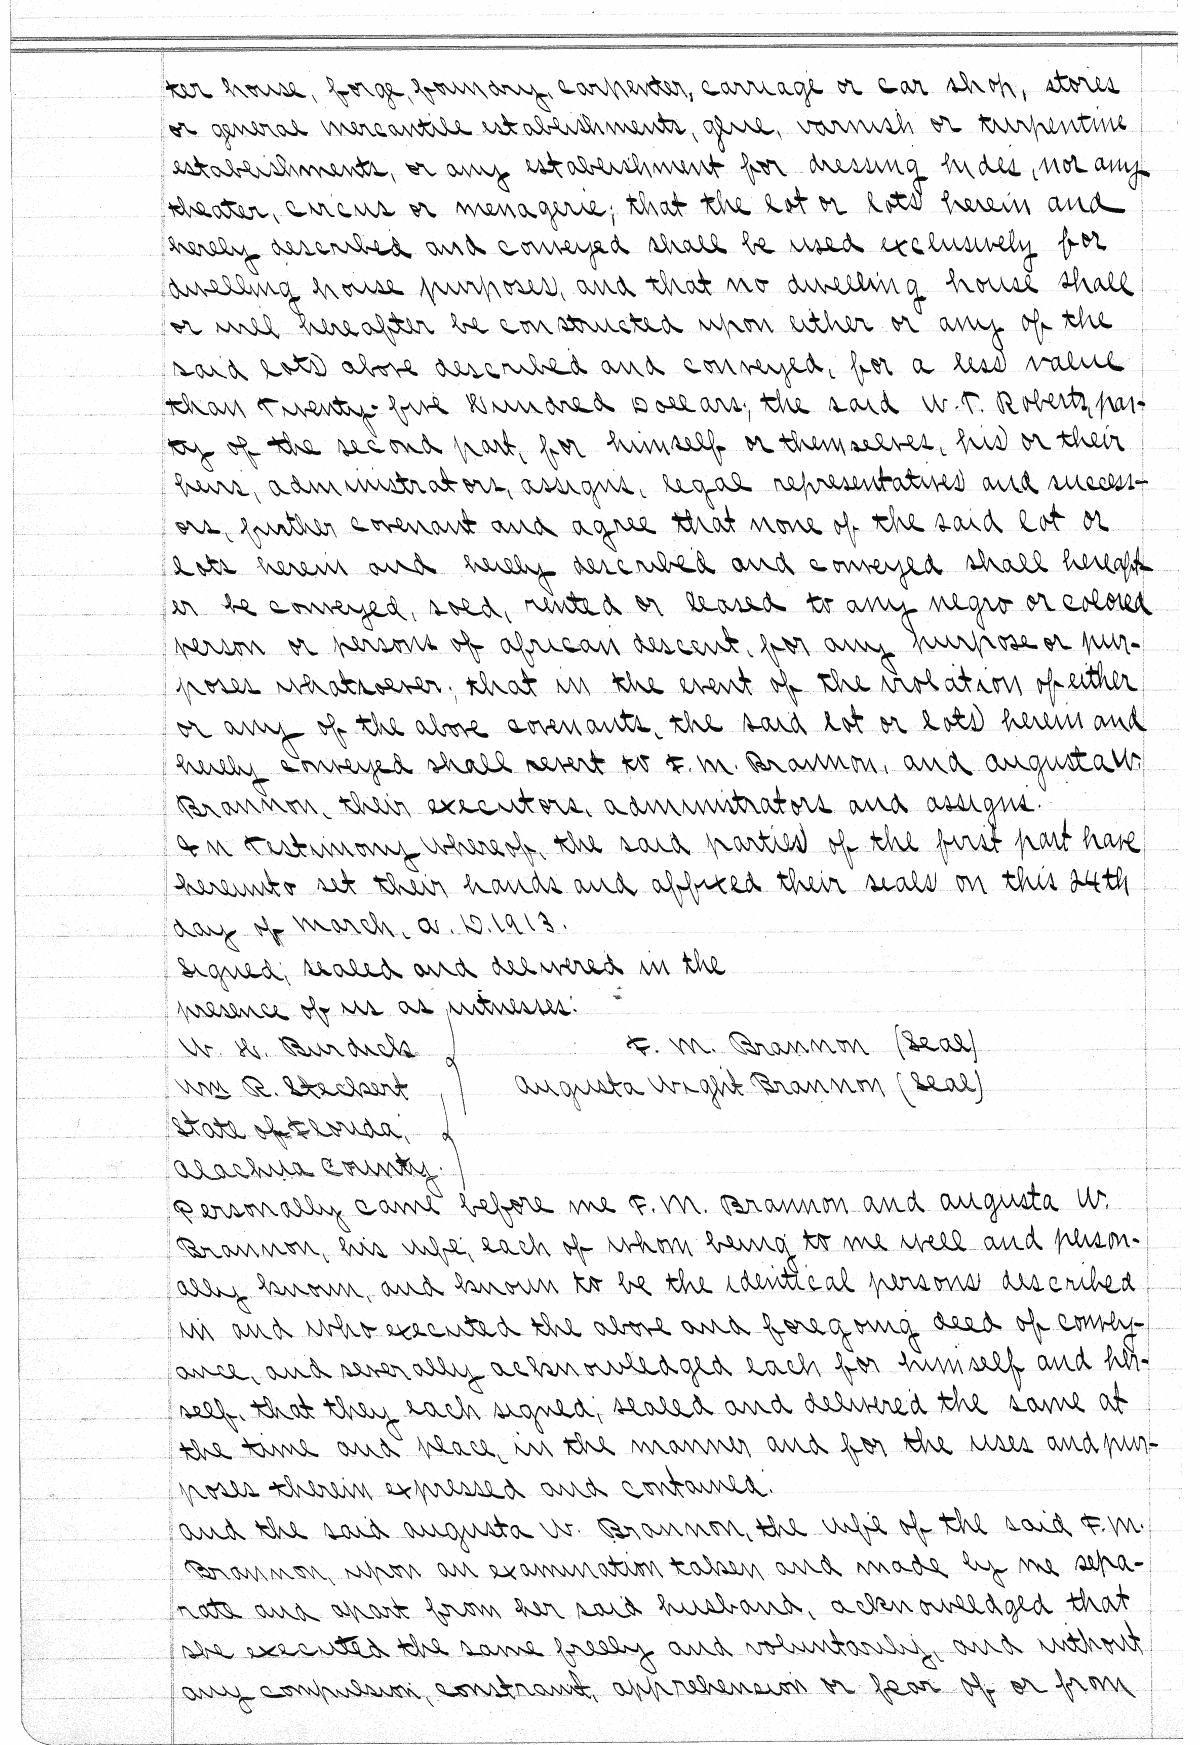 ter house, forge, foundry, carpenter, carriage or car shop, stores
or general mercantile establishments, glue, varnish or turpentine
establishments, or any establishment for dressing hides, nor any
theater, circus or menagerie; that the lot or lots herein and
hereby described and conveyed shall be used exclusively for
dwelling house purposes, and that no dwelling house shall
or will hereafter be constructed upon either or any of the
said lots above described and conveyed, for a less value
than Twenty-five Hundred Dollars; the said W.T. Roberts, par-
ty of the second part, for himself or themselves, his or their
heirs, administrators, assigns, legal representatives and success-
ors, further covenant and agree that none of the said lot or
lots herein and hereby described and conveyed shall hereaft
er be conveyed, sold, rented or leased to any negro or colored
person or persons of african descent, for any purpose or pur-
poses whatsoever; that in the event of the violation of either
or any of the above covenants, the said lot or lots herein and
hereby conveyed shall revert to F.M. Brannon, and Augusta W.
Brannon, their executors, administrators and assigns.
In Testimony Whereof, the said parties of the first part have
hereunto set their hands and affixed their seals on this 24th
day of March, A.D. 1913.
Signed, sealed and delivered in the
presence of us as witnesses:
W. H. Burdick F. M. Brannon (Seal)
Wm R. Steckert Augusta Wright Brannon (Seal)
State of Florida,
Alachua County.
Personally came before me F.M. Brannon and Augusta W.
Brannon, his wife, each of whom being to me well and person-
ally known, and known to be the identical persons described
in and who executed the above and foregoing deed of convey-
ance, and severally acknowledged each for himself and her-
self, that they each signed, sealed and delivered the same at
the time and place, in the manner and for the uses and pur-
poses therein expressed and contained.
And the said Augusta W. Brannon, the wife of the said F.M.
Brannon, upon an examination taken and made by me sepa-
rate and apart from her said husband, acknowledged that
she executed the same freely and voluntarily, and without
any compulsion, constraint, apprehension or fear of or from